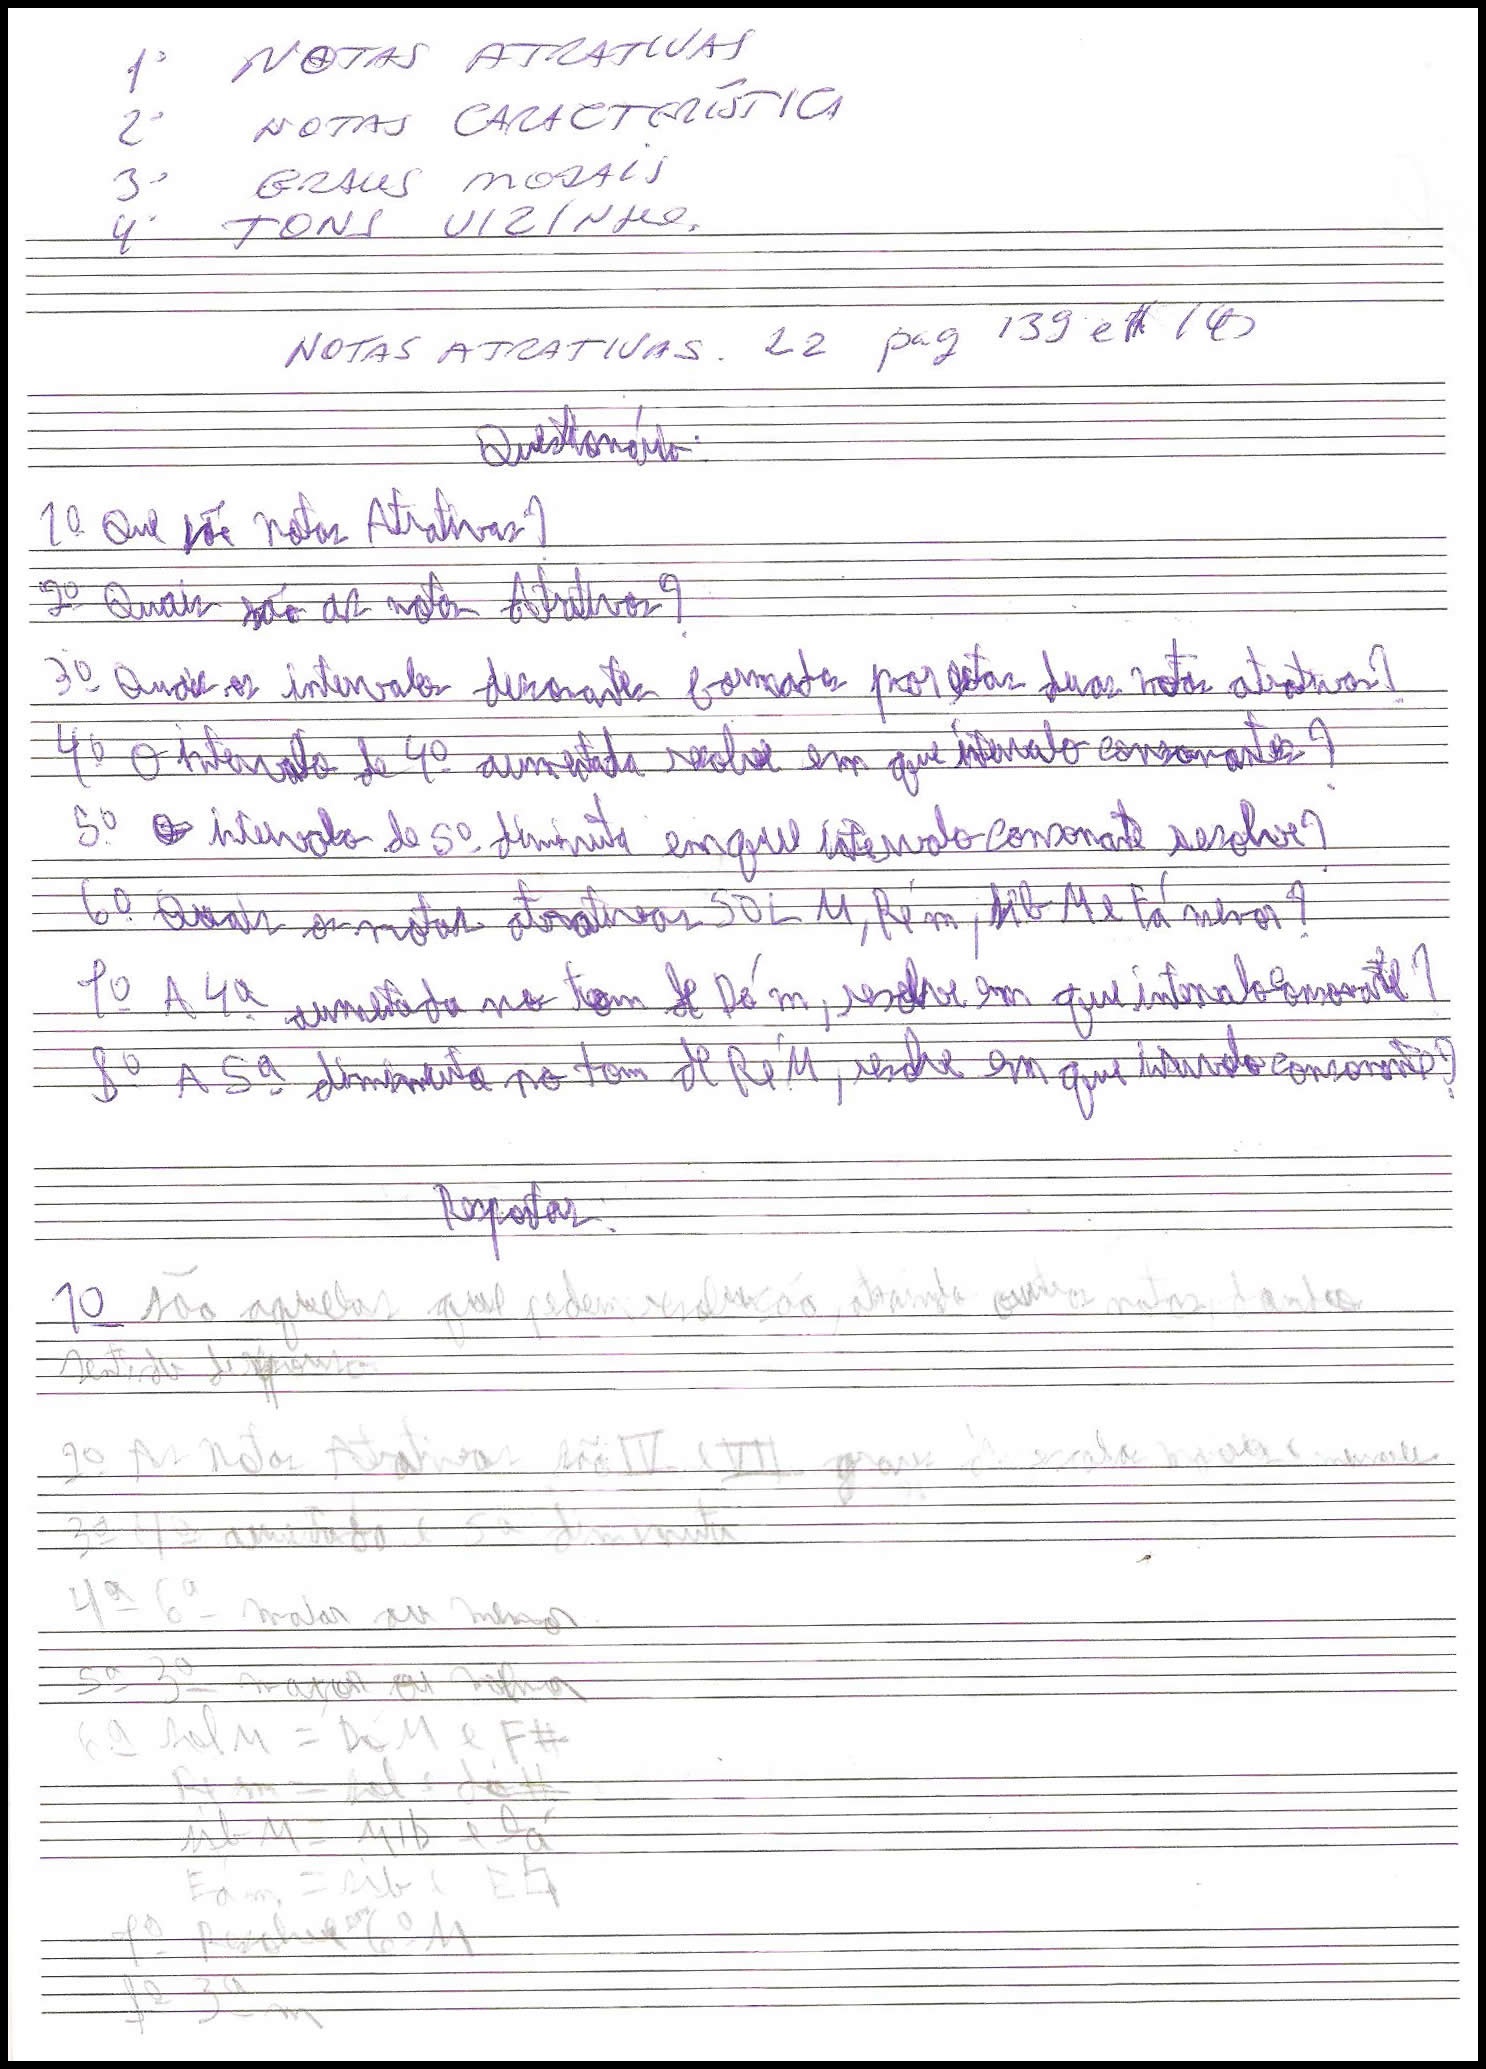 1º NOTAS ATRATIVAS
2º NOTAS CARACTERÍSTICA
3º GRAUS MODAIS
4º TONS VIZINHO.
NOTAS ATRATIVAS. 22 pag 139 e
Questionário:
1º Que são notas Atrativas?
2º Quais são as notas Atrativas?
3º Quais os intervalos dissonantes formados por estas duas notas atrativas?
4º O intervalo de 4º aumentada resolve em que intervalo consonantes?
5º O intervalo de 5º diminuta em que intervalo consonante resolver?
6º Quais as notas atrativas SOL M, Ré m, sib M e Fá menor?
7º A 4ª aumentada no tom de Dó m, resolve em que intervalo consonante?
8º A 5ª diminuta no tom de Ré M, resolve em que intervalo consonante?
Respostas:
1º são aquelas que pedem resolução, outras notas,
sentido de
2º As Notas Atrativas são IV e VII graus da escala maior e menor
3ª 4ª aumentada e 5ª diminuta
4ª 6ª maior ou menor
5ª 3ª maior ou menor
6ª Sol M = Dó M e F#
Ré m = sol e dó#
sib M = MIb e lá
Fá m. = sib e E♮
7º Resolve em 6º M
8ª 3ª m